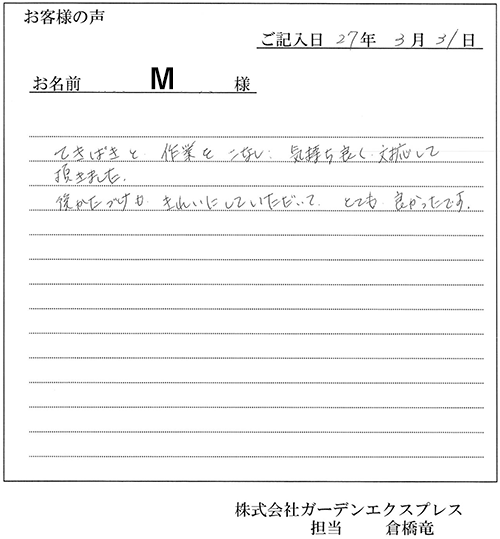 お客様の声
ご記入日 27年 3月 31日
お名前 M 様
てきぱきと 作業を こなし、気持ち良く 対応して
頂きました。
後かたづけも きれいにしていただいて とても 良かったです。
株式会社ガーデンエクスプレス
担当 倉橋竜